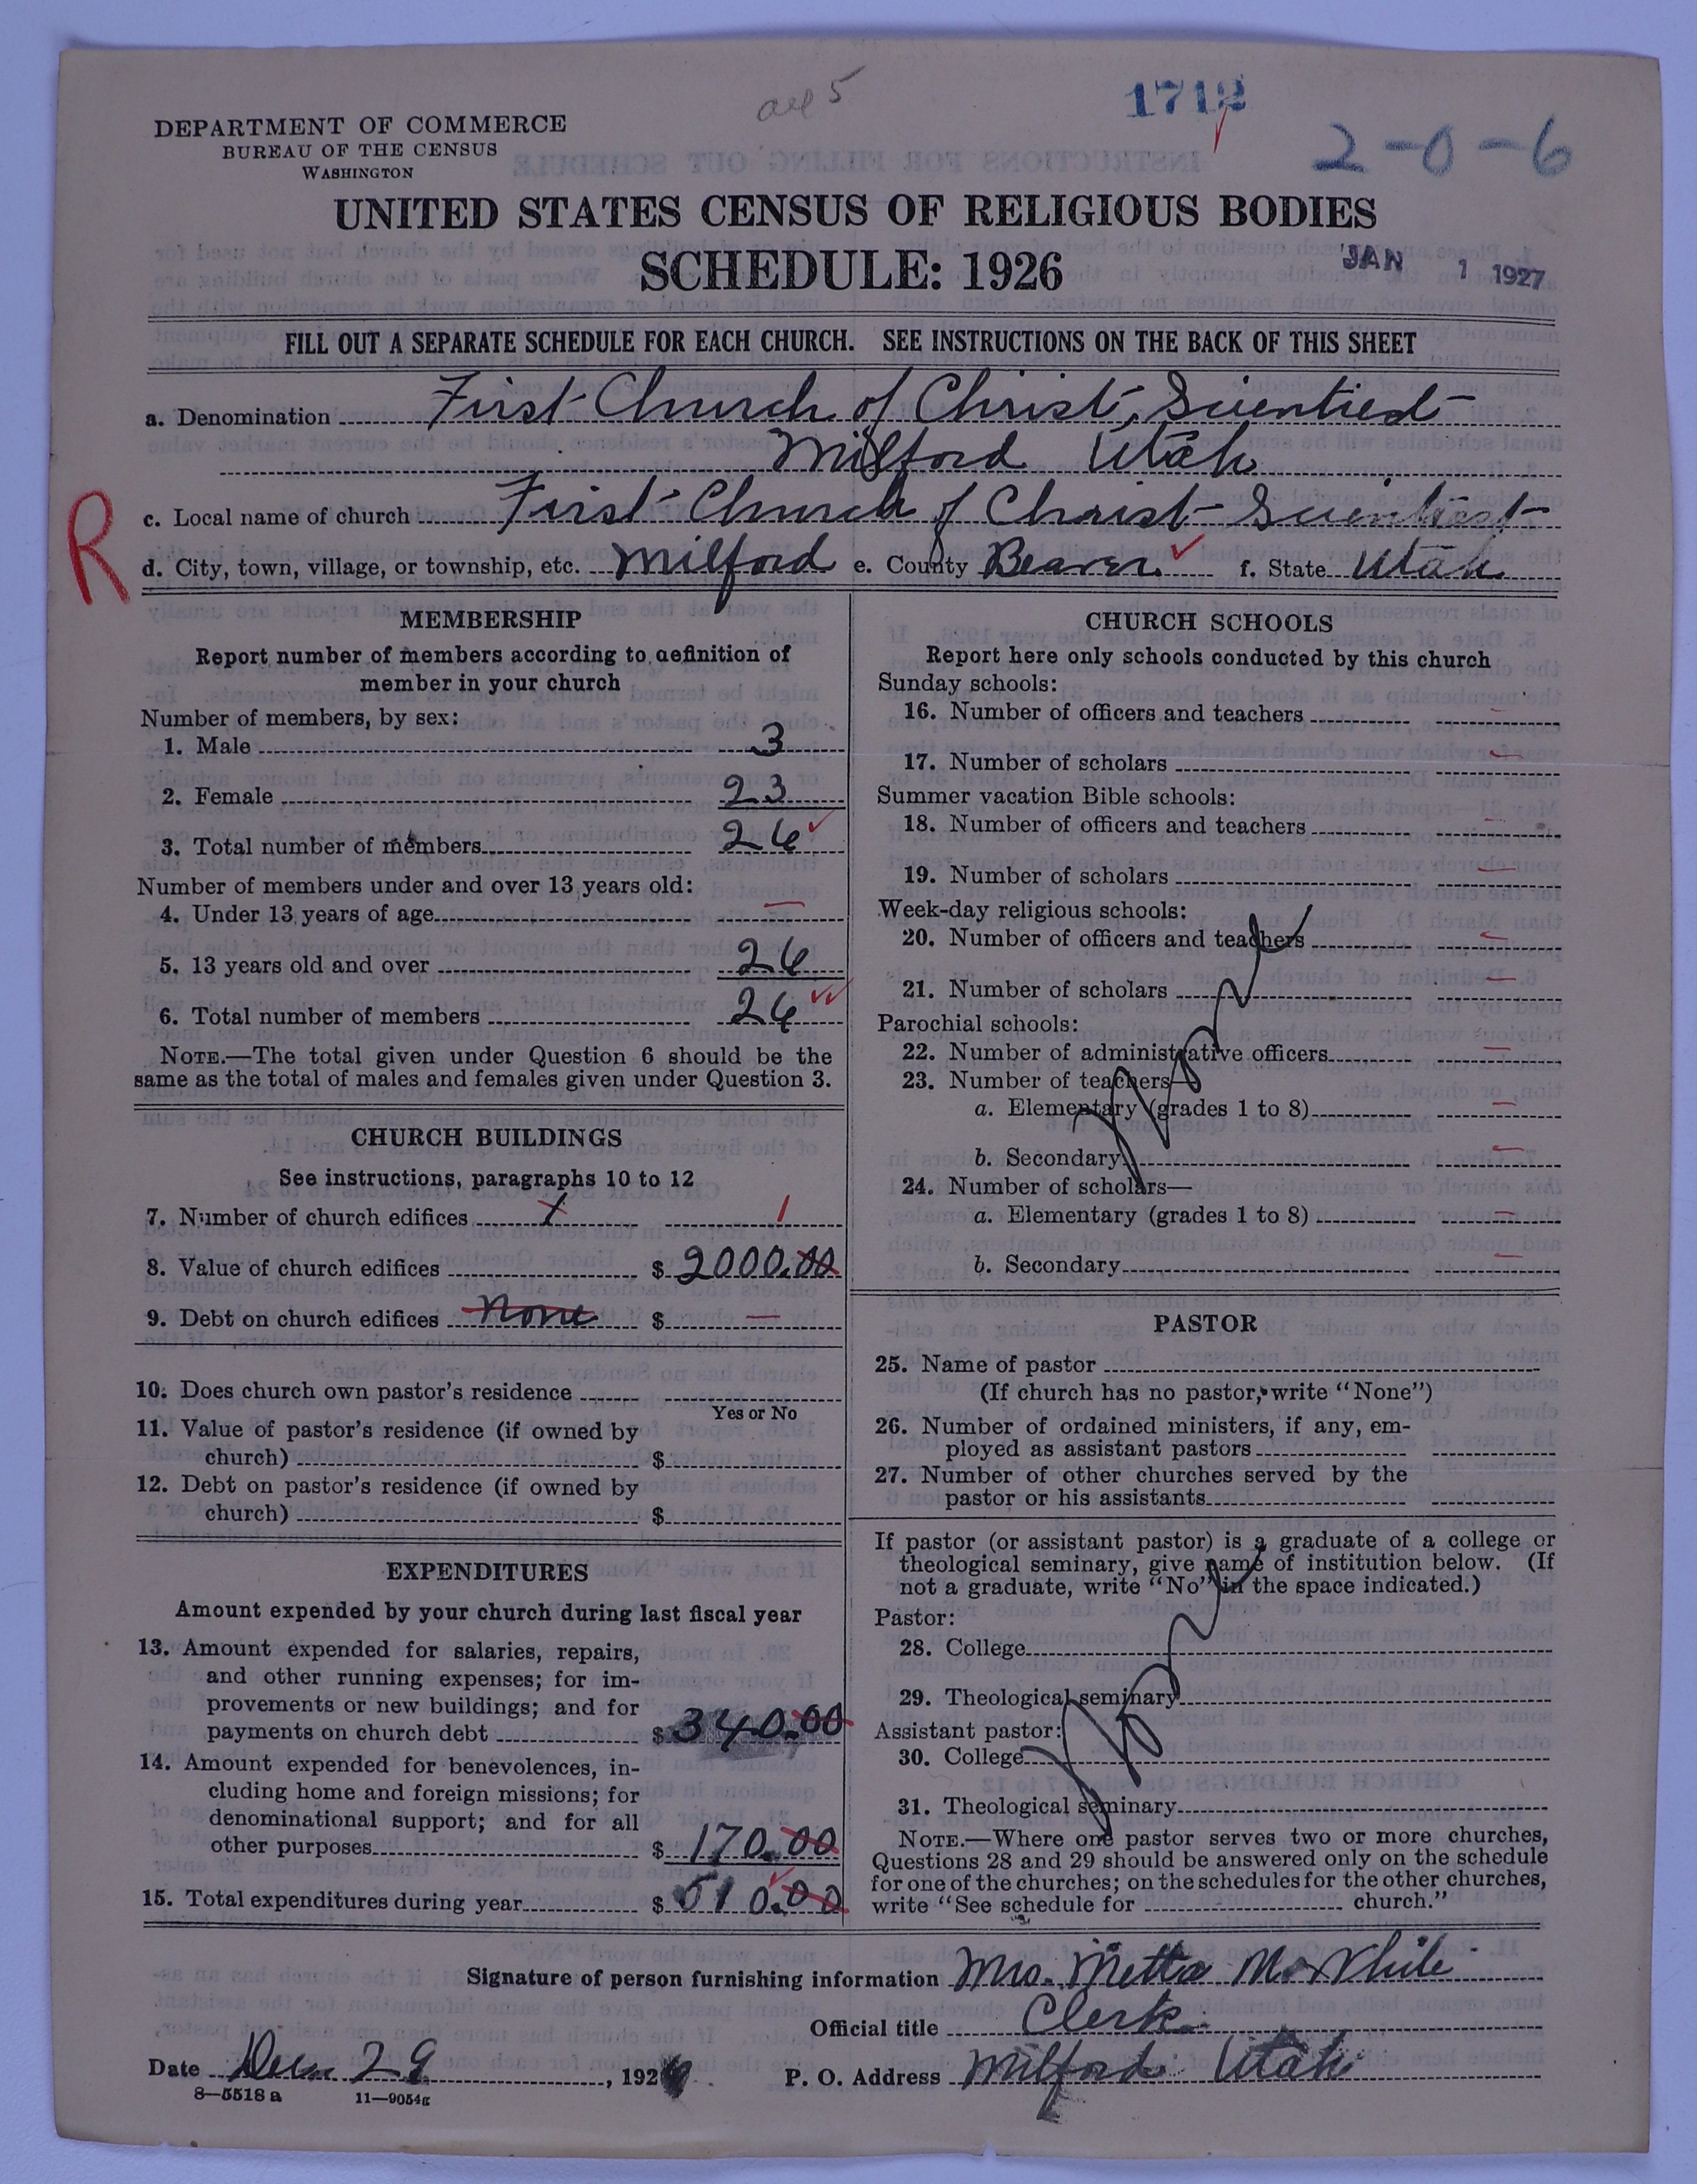 all 5
1712
2-0-6
DEPARTMENT OF COMMERCE
BUREAU OF THE CENSUS
WASHINGTON
UNITED STATES CENSUS OF RELIGIOUS BODIES
SCHEDULE: 1926
JAN 1 1927
FILL OUT A SEPARATE SCHEDULE FOR EACH CHURCH. SEE INSTRUCTIONS ON THE BACK OF THIS SHEET
a. Denomination First Church of Christ, Scientist
Milford Utah
R
c. Local name of church First Church of Christ Scientist
d. City, town, village, or township, etc. Milford e. County Beaver f. State Utah
MEMBERSHIP
Report number of members according to definition of
member in your church
Number of members, by sex:
1. Male 3
2. Female 23
3. Total number of members 26
Number of members under and over 13 years old:
4. Under 13 years of age —
5. 13 years old and over 26
6. Total number of members 26
NOTE.—The total given under Question 6 should be the
same as the total of males and females given under Question 3.
CHURCH BUILDINGS
See instructions, paragraphs 10 to 12
7. Number of church edifices 1 1
8. Value of church edifices $ 2000.00
9. Debt on church edifices None $ —
10. Does church own pastor's residence
Yes or No
11. Value of pastor's residence (if owned by
church) $
12. Debt on pastor's residence (if owned by
church) $
EXPENDITURES
Amount expended by your church during last fiscal year
13. Amount expended for salaries, repairs,
and other running expenses; for im-
provements or new buildings; and for
payments on church debt $ 340.00
14. Amount expended for benevolences, in-
cluding home and foreign missions; for
denominational support; and for all
other purposes $ 170.00
15. Total expenditures during year $ 510.00
CHURCH SCHOOLS
Report here only schools conducted by this church
Sunday schools:
16. Number of officers and teachers —
17. Number of scholars —
Summer vacation Bible schools:
18. Number of officers and teachers —
19. Number of scholars —
Week-day religious schools:
20. Number of officers and teachers —
21. Number of scholars —
Parochial schools:
22. Number of administrative officers —
23. Number of teachers—
a. Elementary (grades 1 to 8) —
b. Secondary —
24. Number of scholars—
a. Elementary (grades 1 to 8) —
b. Secondary —
None
PASTOR
25. Name of pastor
(If church has no pastor, write "None")
26. Number of ordained ministers, if any, em-
ployed as assistant pastors
27. Number of other churches served by the
pastor or his assistants
If pastor (or assistant pastor) is a graduate of a college or
theological seminary, give name of institution below. (If
not a graduate, write "No" in the space indicated.)
Pastor:
28. College
29. Theological seminary
Assistant pastor:
30. College
31. Theological seminary
None
NOTE.—Where one pastor serves two or more churches,
Questions 28 and 29 should be answered only on the schedule
for one of the churches; on the schedules for the other churches,
write "See schedule for church."
Signature of person furnishing information Mrs. Metta M. White
Official title Clerk
Date Dec 29, 1926 P. O. Address Milford Utah
8—5518 a 11—9054g